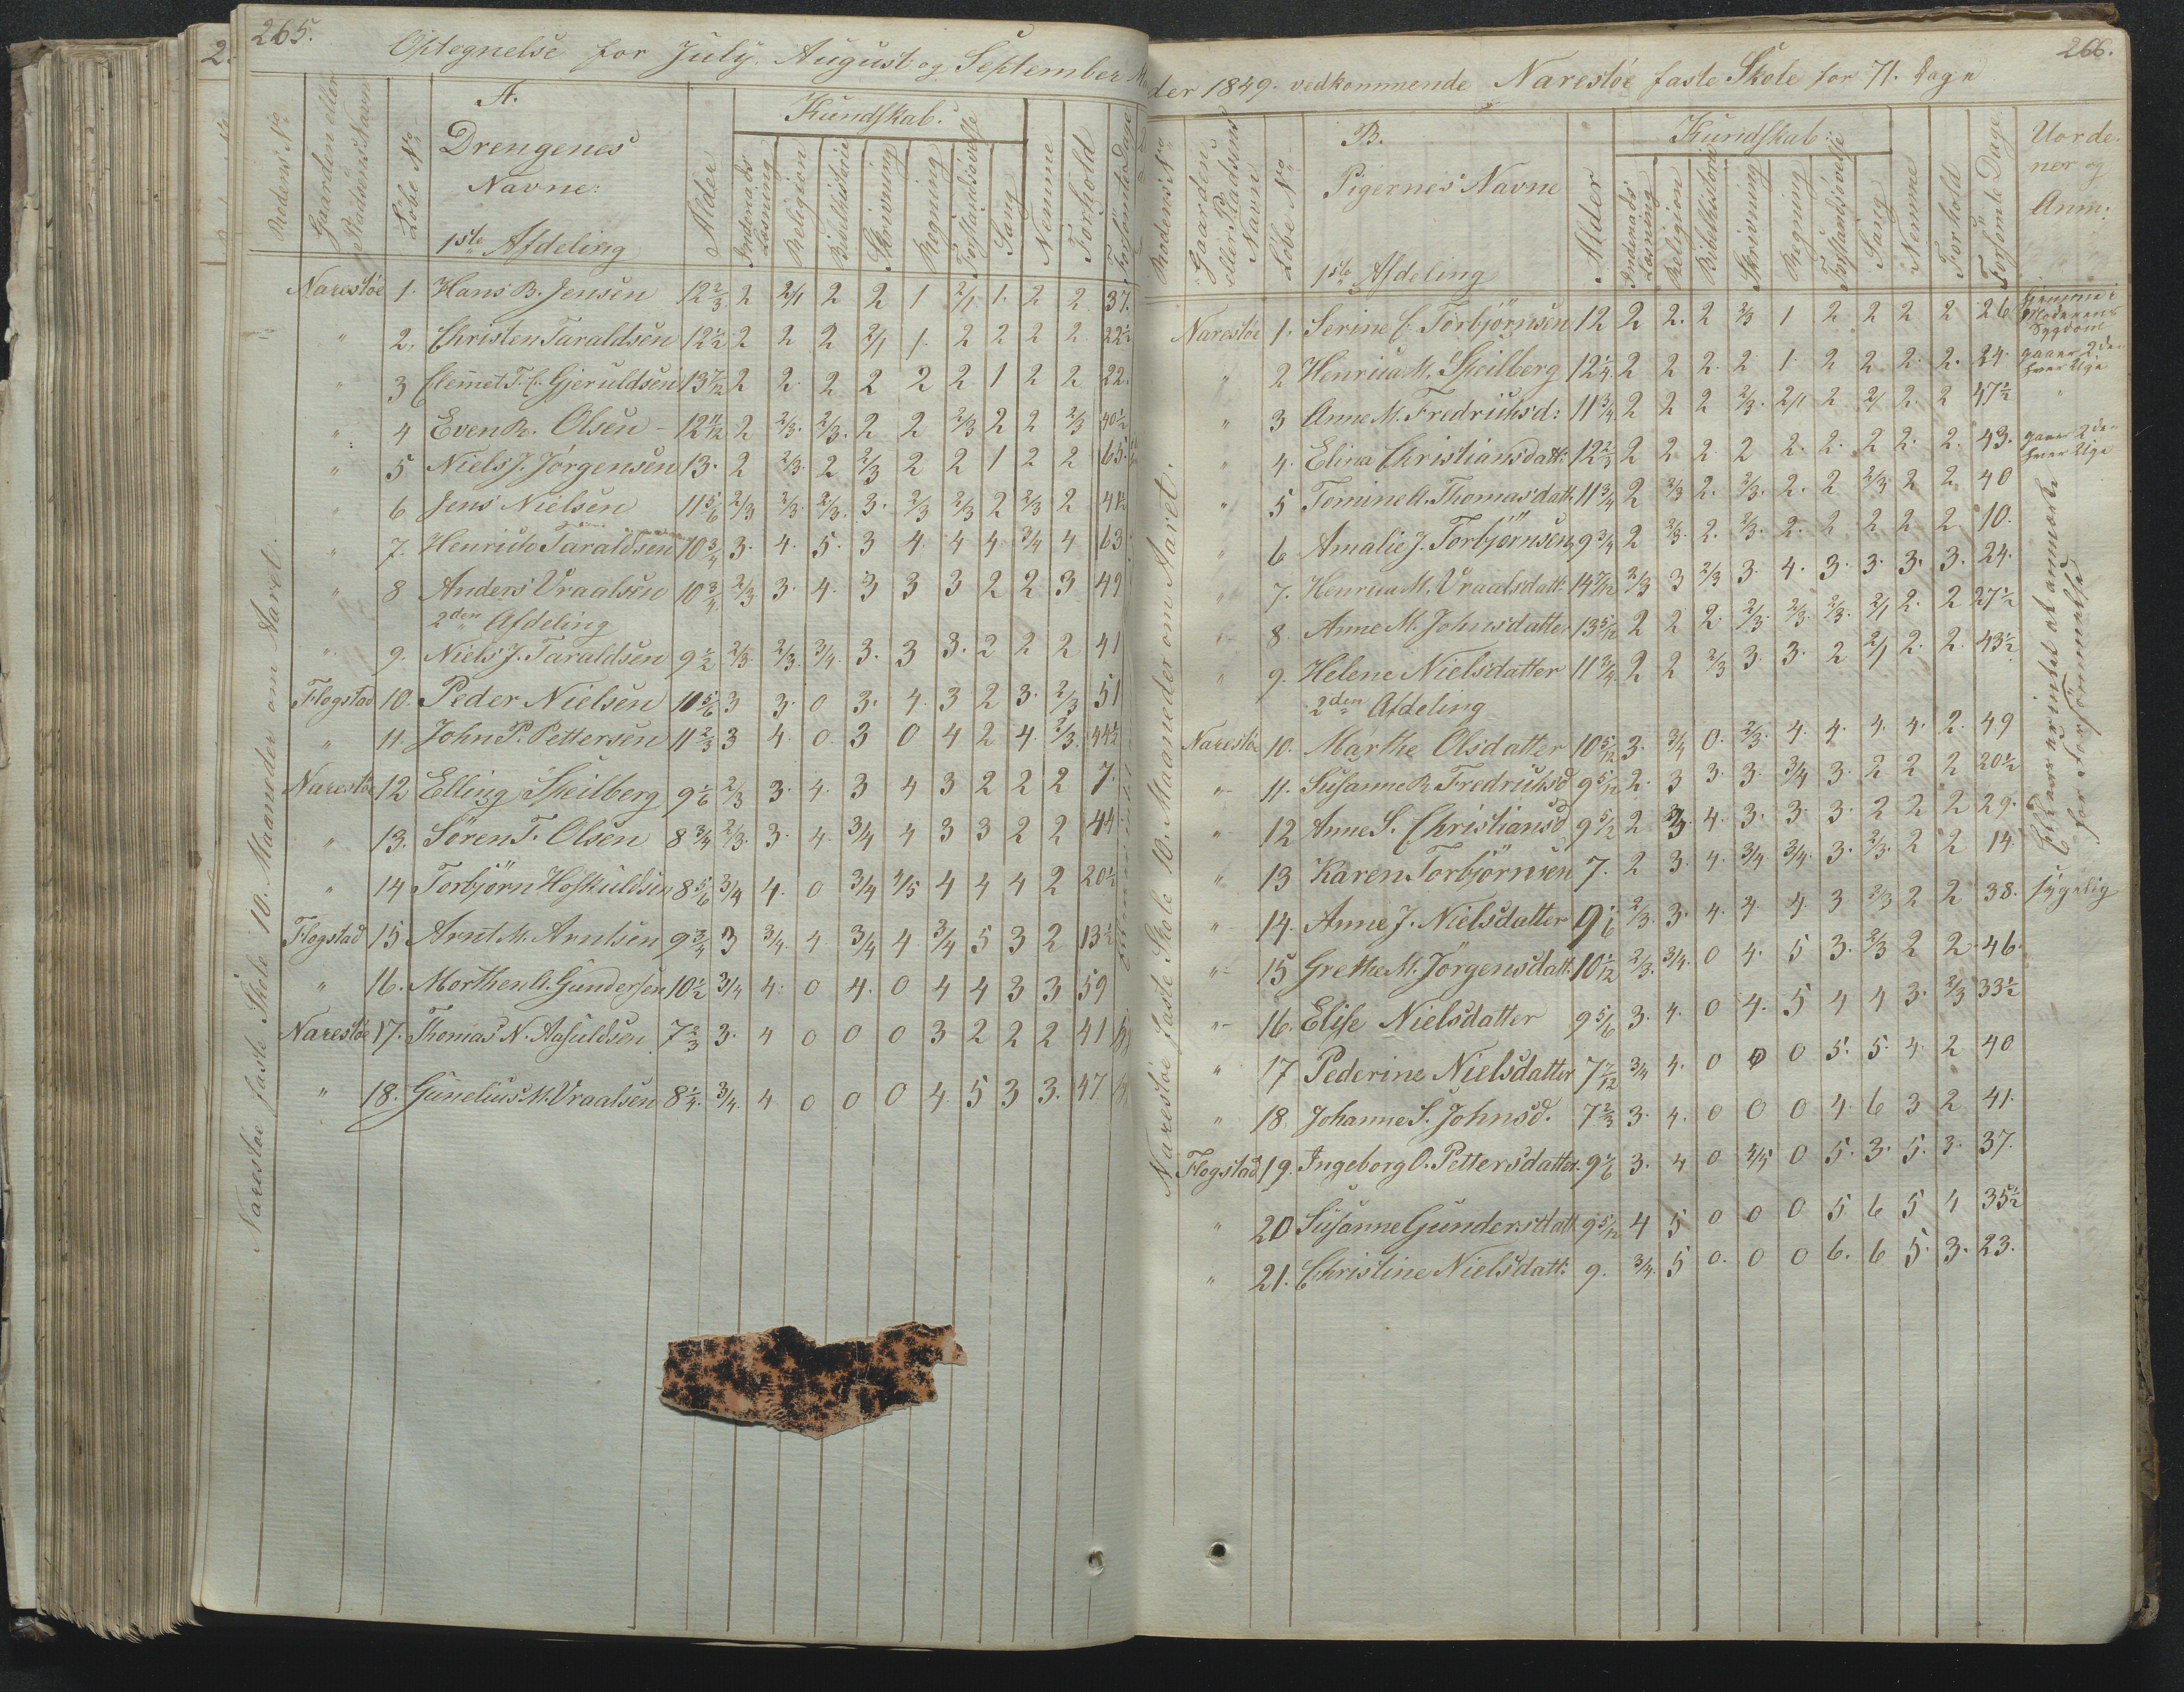 265.
Optegnelse for July, August og September Maa
Rodens No
Gaarden eller Pladsens Navn
Löbe No
A.
Drengenes
Navne:
1ste Afdeling
Alder
Kundskab.
Indenads Læsning
Religion
Bibelhistorie
Skrivning
Regning
Forstandsövelse
Sang
Nemme
Forhold
Forsömte Dage
Narestöe 1. Hans B. Jensen 12 2/3 2 2/1 2 2 1 2/1 1. 2 2 37.
" 2. Christen Taraldsen 12 1/2 2 2 2 2/1 1. 2 2 2 2 22 1/2
" 3 Clemet T. C. Gjeruldsen 13 7/12 2 2 2 2 2 2 1 2 2 22.
" 4 Even R. Olsen - 12 11/12 2 2/3. 2/3. 2 2 2/3 2 2 2/3 40 1/2
" 5 Niels J. Jörgensen 13. 2 2/3. 2 2/3 2 2 1 2 2 65.
" 6 Jens Nielsen 11 5/6 2/3 2/3. 2/3. 3. 2/3 2/3 2 2/3 2 41 1/2
" 7. Henrich Taraldsen 10 3/4 3. 4. 5. 3 4. 4 4 3/4 4 63
" 8 Anders Vraalsen 10 3/4. 2/3. 3. 4. 3 3 3 2 2 3 49
2den Afdeling
" 9. Niels J. Taraldsen 9 1/2 2/3. 2/3. 3/4. 3. 3 3. 2 2 2 41
Flogstad 10. Peder Nielsen 10 5/6 3 3. 0 3. 4. 3 2 3. 2/3 51
" 11. John P. Pettersen 11 2/3 3 4. 0. 3 0 4 2 4. 2/3. 44 1/2
Narestöe 12 Elling Speilberg 9 1/6 2/3 3. 4. 3 4 3 2 2 2 7.
" 13. Sören T. Olsen 8 3/4 2/3. 3. 4. 3/4 4 3 3 2 2 44
" 14 Torbjörn Hoskuldsen 8 5/6 3/4 4. 0 3/4 4/5 4 4 4 2 20 1/2
Flogstad 15 Arnt M. Arntsen 9 3/4 3 3/4. 4. 3/4 4. 3/4 5 3 2 13 1/2
" 16. Morthen A. Gundersen 10 1/2 3/4 4. 0 4. 0 4 4 3 3 59
Narestöe 17. Thomas N. Aasuldsen 7 2/3 3. 4 0 0 0 3 2 2 2 41
" 18. Gunelius M. Vraalsen 8 1/4. 3/4. 4 0 0 0 4. 5 3 3. 47
Narestöe faste Skole 10. Maaneder om Aaret.
266.
der 1849. vedkommende Narestöe faste Skole for 71. Dage
Rodens No
Gaardens eller Pladsens Navn
Löbe No
B.
Pigernes Navne
1ste Afdeling
Alder
Kundskab:
Indenads Læsning
Religion
Bibelhistorie
Skrivning
Regning
Forstandsövelse
Sang
Nemme
Forhold
Forsömte Dage
Uorde-
ner og
Anm:
Narestöe 1. Serine C. Torbjörnsen 12 2 2. 2 2/3 1 2 2 2 2 26 hjemme i Moderens Sygdom
" 2 Henrica M. Speilberg 12 1/4. 2 2 2. 2 1. 2 2 2. 2. 24. gaaer 2den hver Uge
" 3 Anne M. Fredriksd: 11 3/4 2 2 2 2/3. 2/1 2 2/1 2. 2 47 1/2 "
" 4. Elina Christiansdatt: 12 2/3 2 2 2 2 2. 2. 2 2. 2. 43. gaaer 2den hver Uge
" 5 Tomine A. Thomasdatt. 11 3/4 2 2/3 2. 2/3. 2. 2 2/3 2 2 40
" 6 Amalie J. Torbjörnsen 9 3/4 2 2/3. 2. 2/3. 2. 2 2 2 2. 10.
" 7. Henrica M. Vraalsdatt. 14 7/12 2/3 3 2/3 3. 4. 3. 3. 3. 3. 24.
" 8. Anne M. Johnsdatter 13 5/12 2 2 2. 2/3. 2/3. 2/3. 2/1 2. 2 27 1/2
" 9. Helene Nielsdatter 11 3/4. 2 2 2/3 3. 3. 2 2/1 2. 2. 43 1/2
2den Afdeling
Narestöe 10. Marthe Olsdatter 10 5/12 3. 3/4 0. 2/3. 4. 4. 4. 4. 2. 49
" 11. Susanne R. Fredriksd 9 5/12 2. 3 3. 3. 3/4 3. 2 2 2 20 1/2
" 12 Anne S. Christiansd 9 5/12 2 3. 4. 3. 3. 3. 2 2 2 29.
" 13 Karen Torbjörnsen 7. 2 3. 4. 3/4 3/4. 3. 2/3. 2 2 14.
" 14. Anne J. Nielsdatter 9 1/6 2/3. 3. 4. 4. 4. 3 2/3 2 2 38. sygelig
" 15 Grethe M. Jörgensdatt. 10 1/12 2/3. 3/4. 0 4. 5 3. 2/3 2 2. 46.
" 16. Elise Nielsdatter 9 5/6 3. 4. 0 4. 5 4 4 3. 2/3 33 1/2
" 17 Pederine Nielsdatter 7 7/12 3/4 4. 0 0 0 5. 5. 4. 2 40
" 18. Johanne S. Johnsd. 7 2/3 3. 4. 0 0 0 4. 6 3 2 41.
Flogstad 19. Ingeborg O. Pettersdatter 9 1/6 3. 4 0 4/5 0 5. 3. 5. 3. 37.
" 20 Susanne Gundersdatt. 9 5/12 4 5 0 0 0 5. 6 5 4 35 1/2
" 21. Christine Nielsdatt: 9. 3/4. 5 0. 0 0 6. 6 5. 3. 23.
Narestöe faste Skole 10. Maaneder om Aaret.
Ellers er intet at anmærke
for forsömmelse